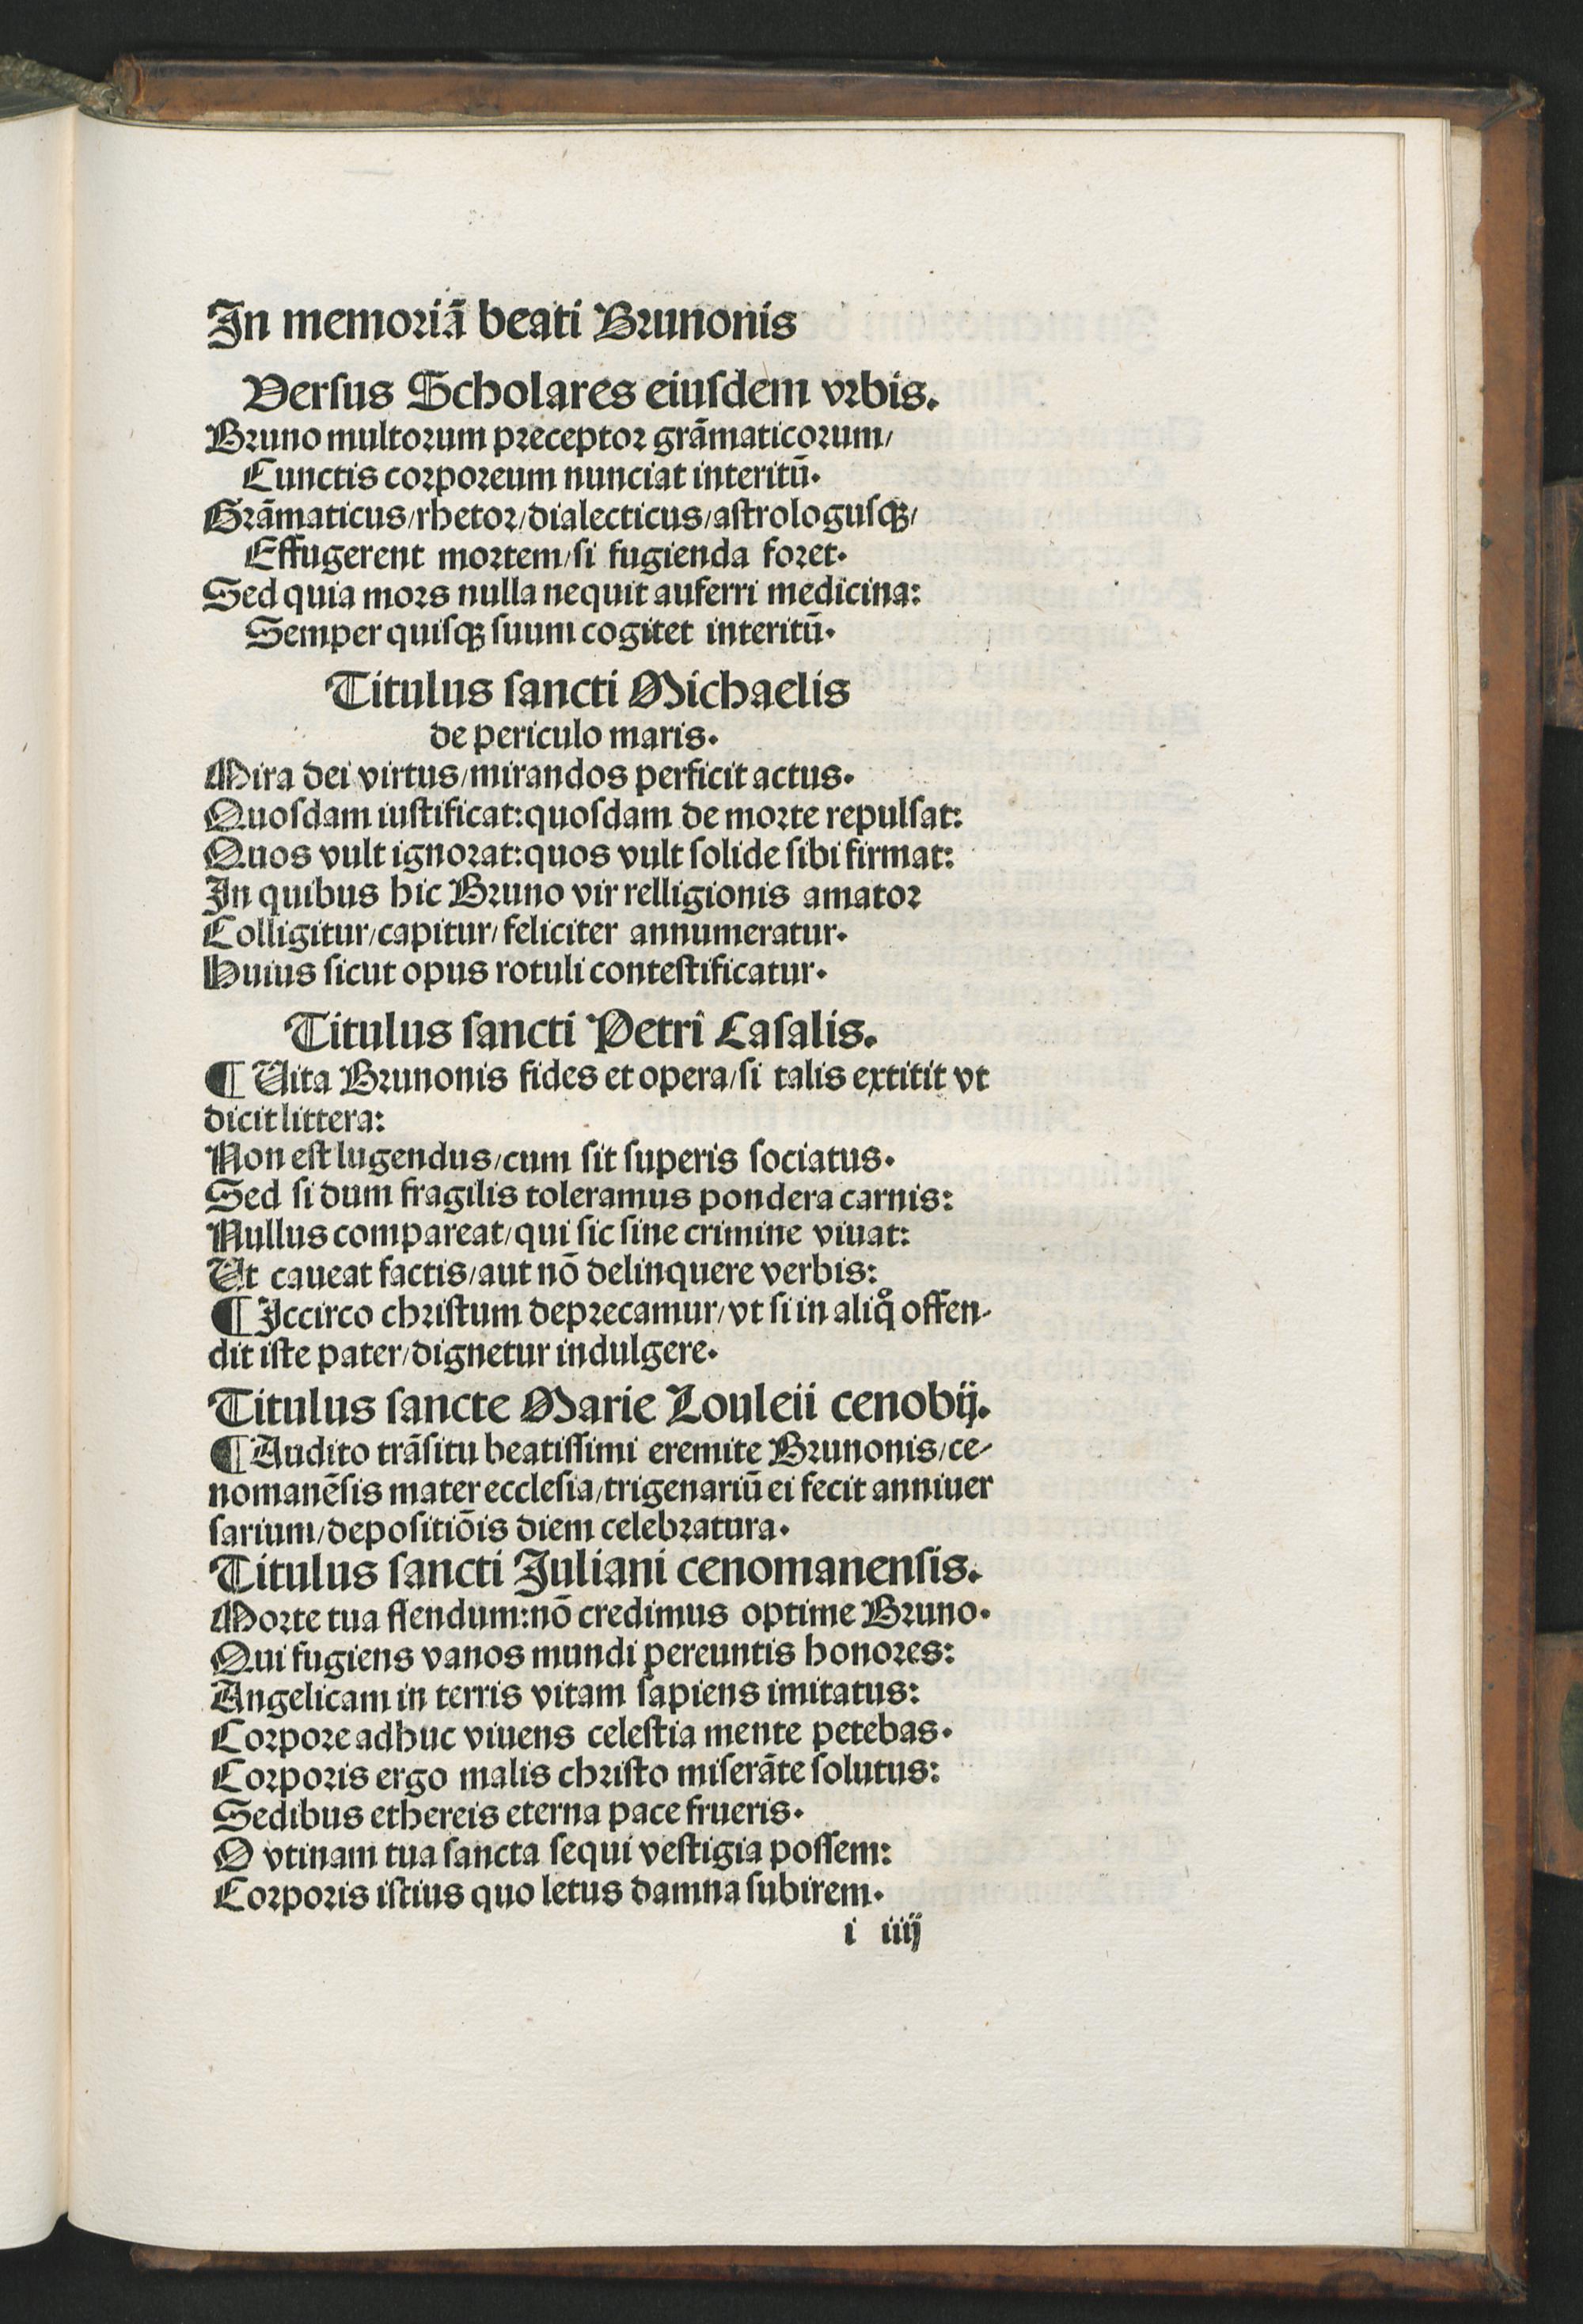 In memoriā beati Brunonis
Versus Scholares eiuſdem vrbis.
Bruno multorum preceptor grāmaticorum/
Cunctis corporeum nunciat interitū.
Grāmaticus/rhetor/dialecticus/aſtrologuſqꝫ/
Effugerent mortem/ſi fugienda foret.
Sed quia mors nulla nequit auferri medicina:
Semper quiſqꝫ ſuum cogitet interitū.
Titulus ſancti Michaelis
de periculo maris.
Mira dei virtus/mirandos perficit actus.
Quoſdam iuſtificat:quoſdam de morte repulſat:
Quos vult ignorat:quos vult ſolide ſibi firmat:
In quibus hic Bruno vir relligionis amator
Colligitur/capitur/feliciter annumeratur.
Huius ſicut opus rotuli conteſtificatur.
Titulus ſancti Petri Caſalis.
¶ Vita Brunonis fides et opera/ſi talis extitit vt
dicit littera:
Non eſt lugendus/cum ſit ſuperis ſociatus.
Sed ſi dum fragilis toleramus pondera carnis:
Nullus compareat/qui ſic ſine crimine viuat:
Ut caueat factis/aut nō delinquere verbis:
¶ Iccirco chriſtum deprecamur/vt ſi in aliq̊ offen-
dit iſte pater/dignetur indulgere.
Titulus ſancte Marie Louleii cenobij.
¶ Audito trāſitu beatiſſimi eremite Brunonis/ce-
nomanēſis mater eccleſia/trigenariū ei fecit anniuer
ſarium/depoſitiōis diem celebratura.
Titulus ſancti Juliani cenomanenſis.
Morte tua flendum:nō credimus optime Bruno.
Qui fugiens vanos mundi pereuntis honores:
Angelicam in terris vitam ſapiens imitatus:
Corpore adhuc viuens celeſtia mente petebas.
Corporis ergo malis chriſto miſerāte ſolutus:
Sedibus ethereis eterna pace frueris.
O vtinam tua ſancta ſequi veſtigia poſſem:
Corporis iſtius quo letus damna ſubirem.
i iiij